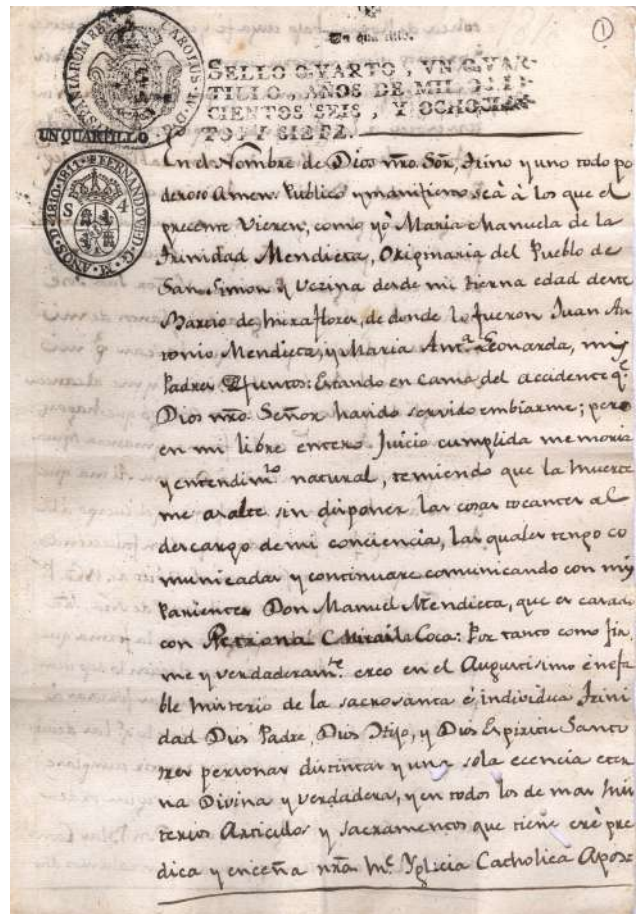 1
Un quartillo.
SELLO QVARTO, VN QVAR-
TILLO, AÑOS DE MIL OCHO-
CIENTOS SEIS, Y OCHOCIEN-
TOS Y SIETE.
HISPANIARUM REX CAROLUS IV D.
UN QUARTILLO
FERNANDO VII D. G. AÑOS D. 1810. 1811.
S 4
En el Nombre de Dios nro. Sōr, trino y uno todo po
deroso Amen. Publico y manifiesto seà à los que el
precente Vieren, como yo Maria Manuela de la
trinidad Mendieta, Originaria del Pueblo de
San Simon y Vezina desde mi tierna edad deste
Barrio de miraflores, de donde lo fueron Juan An
tonio Mendieta, y Maria Anta. Leonarda, mis
Padres difuntos: Estando en cama del accidente q.e
Dios nro Señor havido servido embiarme; pero
en mi libre entero Juicio cumplida memoria
y entendimto. natural, temiendo que la muerte
me asalte sin disponer las cosas tocantes al
descargo de mi conciencia, las quales tengo co
municadas y continuare comunicando con mis
Parientes Don Manuel Mendieta, que es casado
con Petrona Coca: Por tanto como fir
me y verdaderamte. creo en el Augustisimo è inefa
ble misterio de la sacrosanta è individua trini
dad Dios Padre, Dios Hijo, y Dios Espiritu Santo
tres personas distintas y una sola ecencia eter
na Divina y verdadera, y en todos los de mas mis
terios Articulos y sacramentos que tiene creè pre
dica y enceña nra Me. Yglicia Catholica Apos